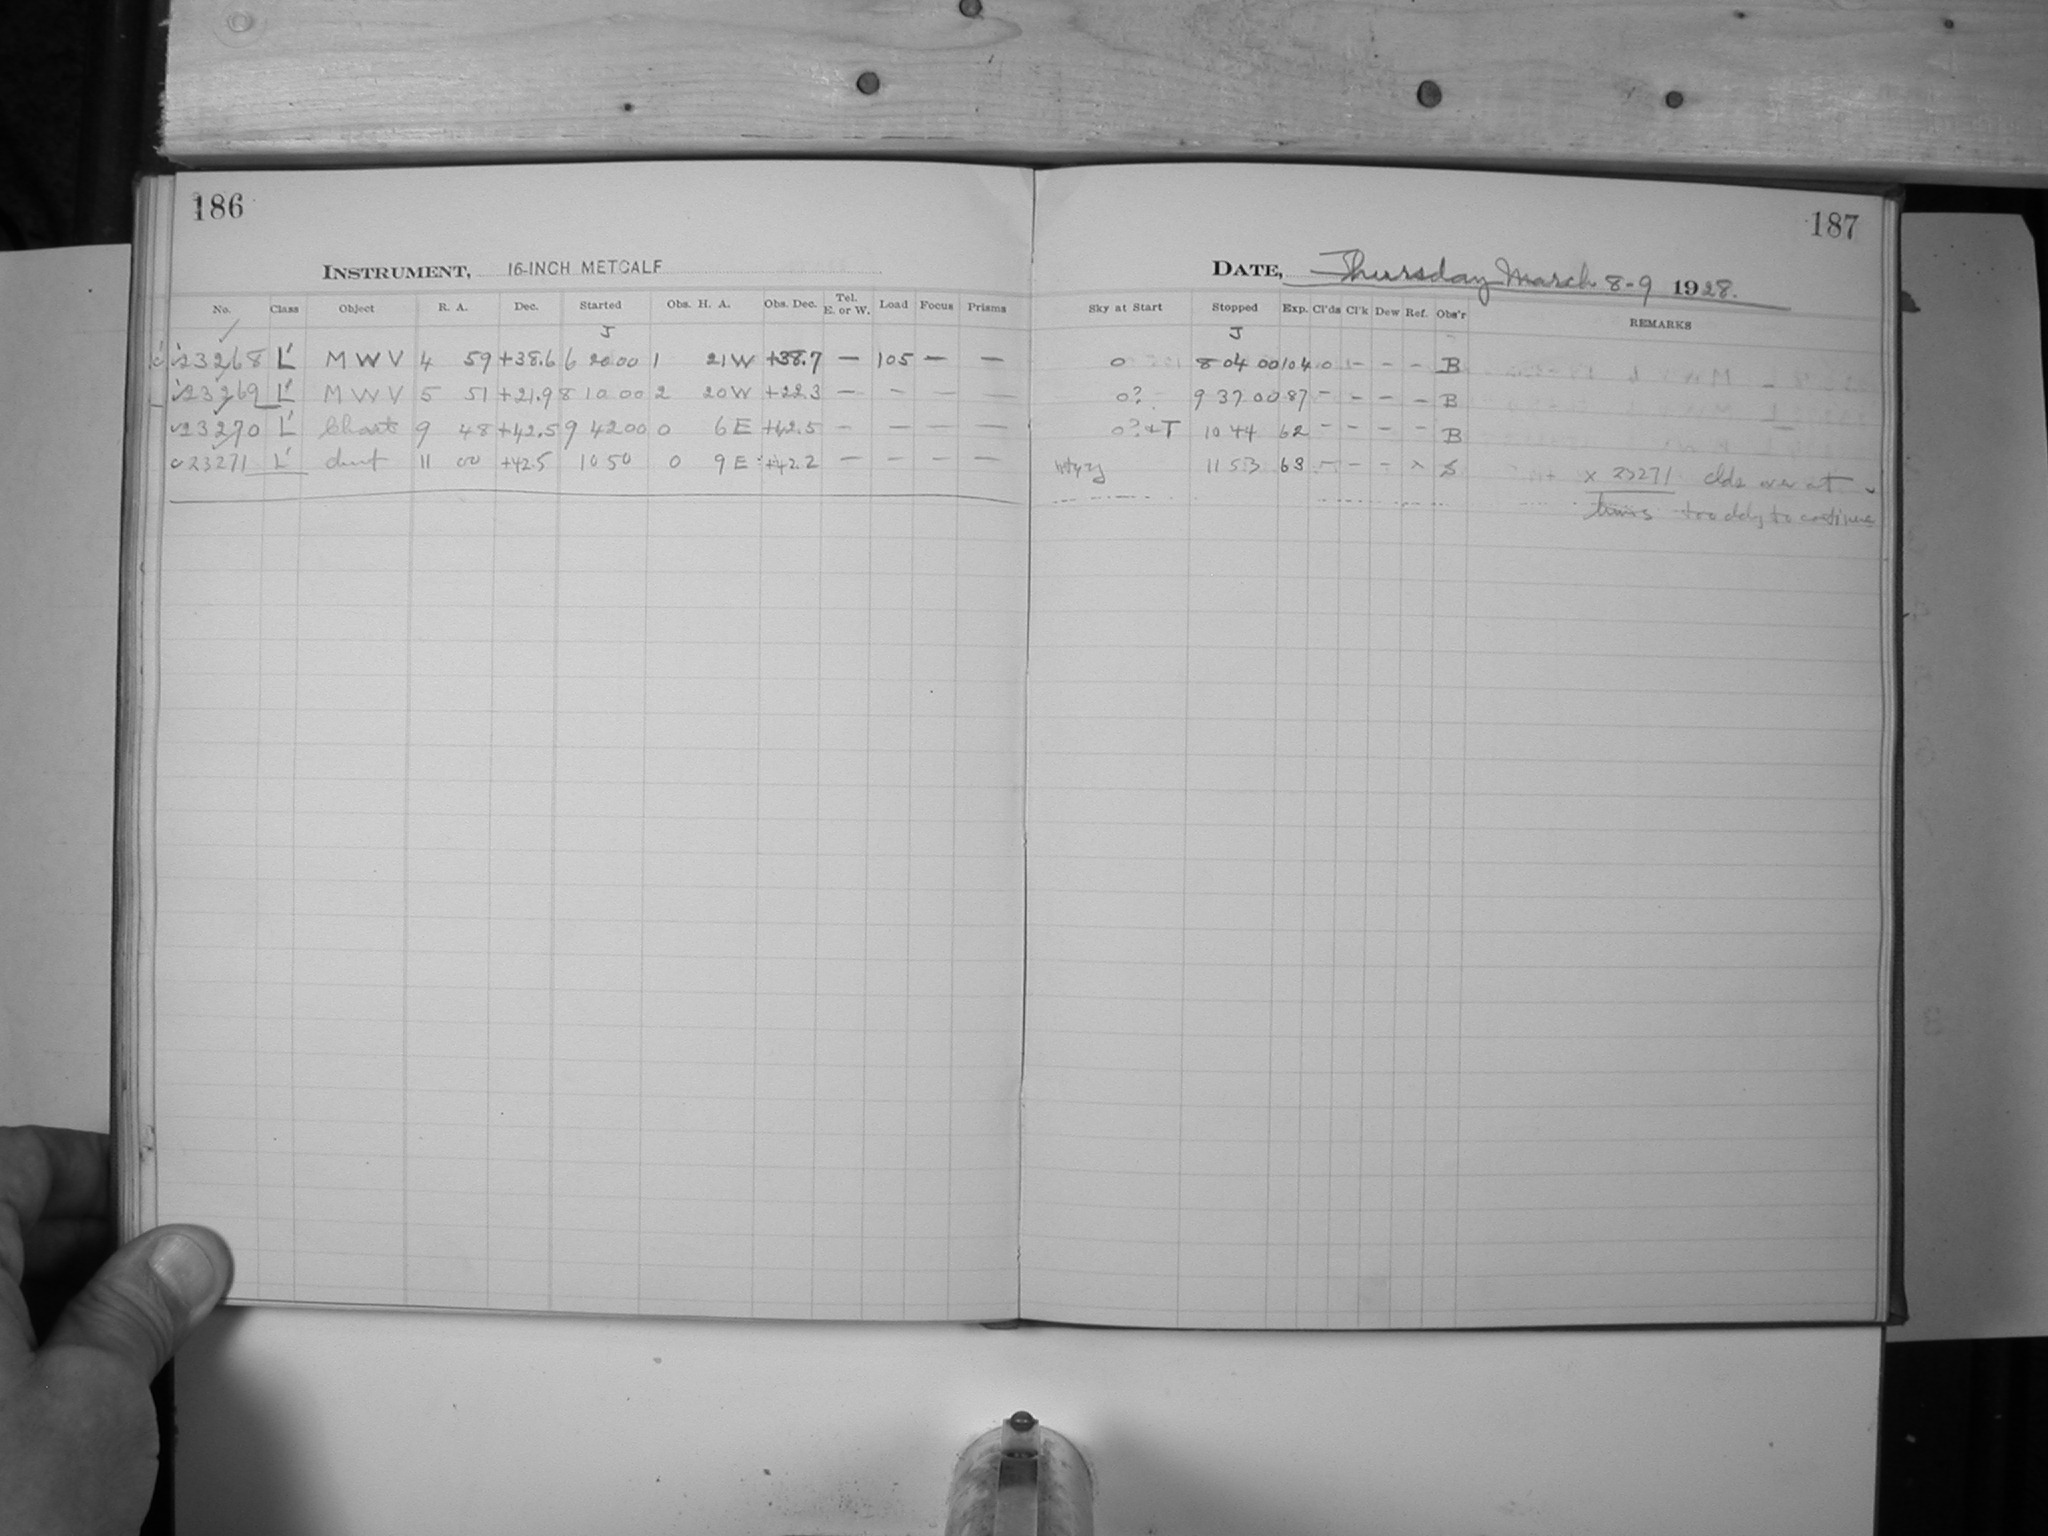 186
187
INSTRUMENT, 16-INCH METCALF
DATE, Thursday March 8-9 1928.
No. Class Object R. A. Dec. Started Obs. H. A. Obs. Dec. Tel. E. or W. Load Focus Prisms Sky at Start Stopped Exp. Cl'ds Cl'k Dew Ref. Obs'r REMARKS
J J
23268 L' M W V 4 59 +38.6 6 20 00 1 21 W +38.7 — 105 — — 0 8 04 00 104 0 - - - B
23269 L' M W V 5 51 +21.9 8 10 00 2 20 W +22.3 — — — — 0? 9 37 00 87 - - - - B
23270 L' Chart 9 48 +42.5 9 42 00 0 6 E +42.5 - — — — 0?+T 10 44 62 - - - - B
23271 L' 11 00 +42.5 10 50 0 9 E +42.2 — — — — 11 53 63 - - - x S x 23271 clds over at
times too cldy to continue